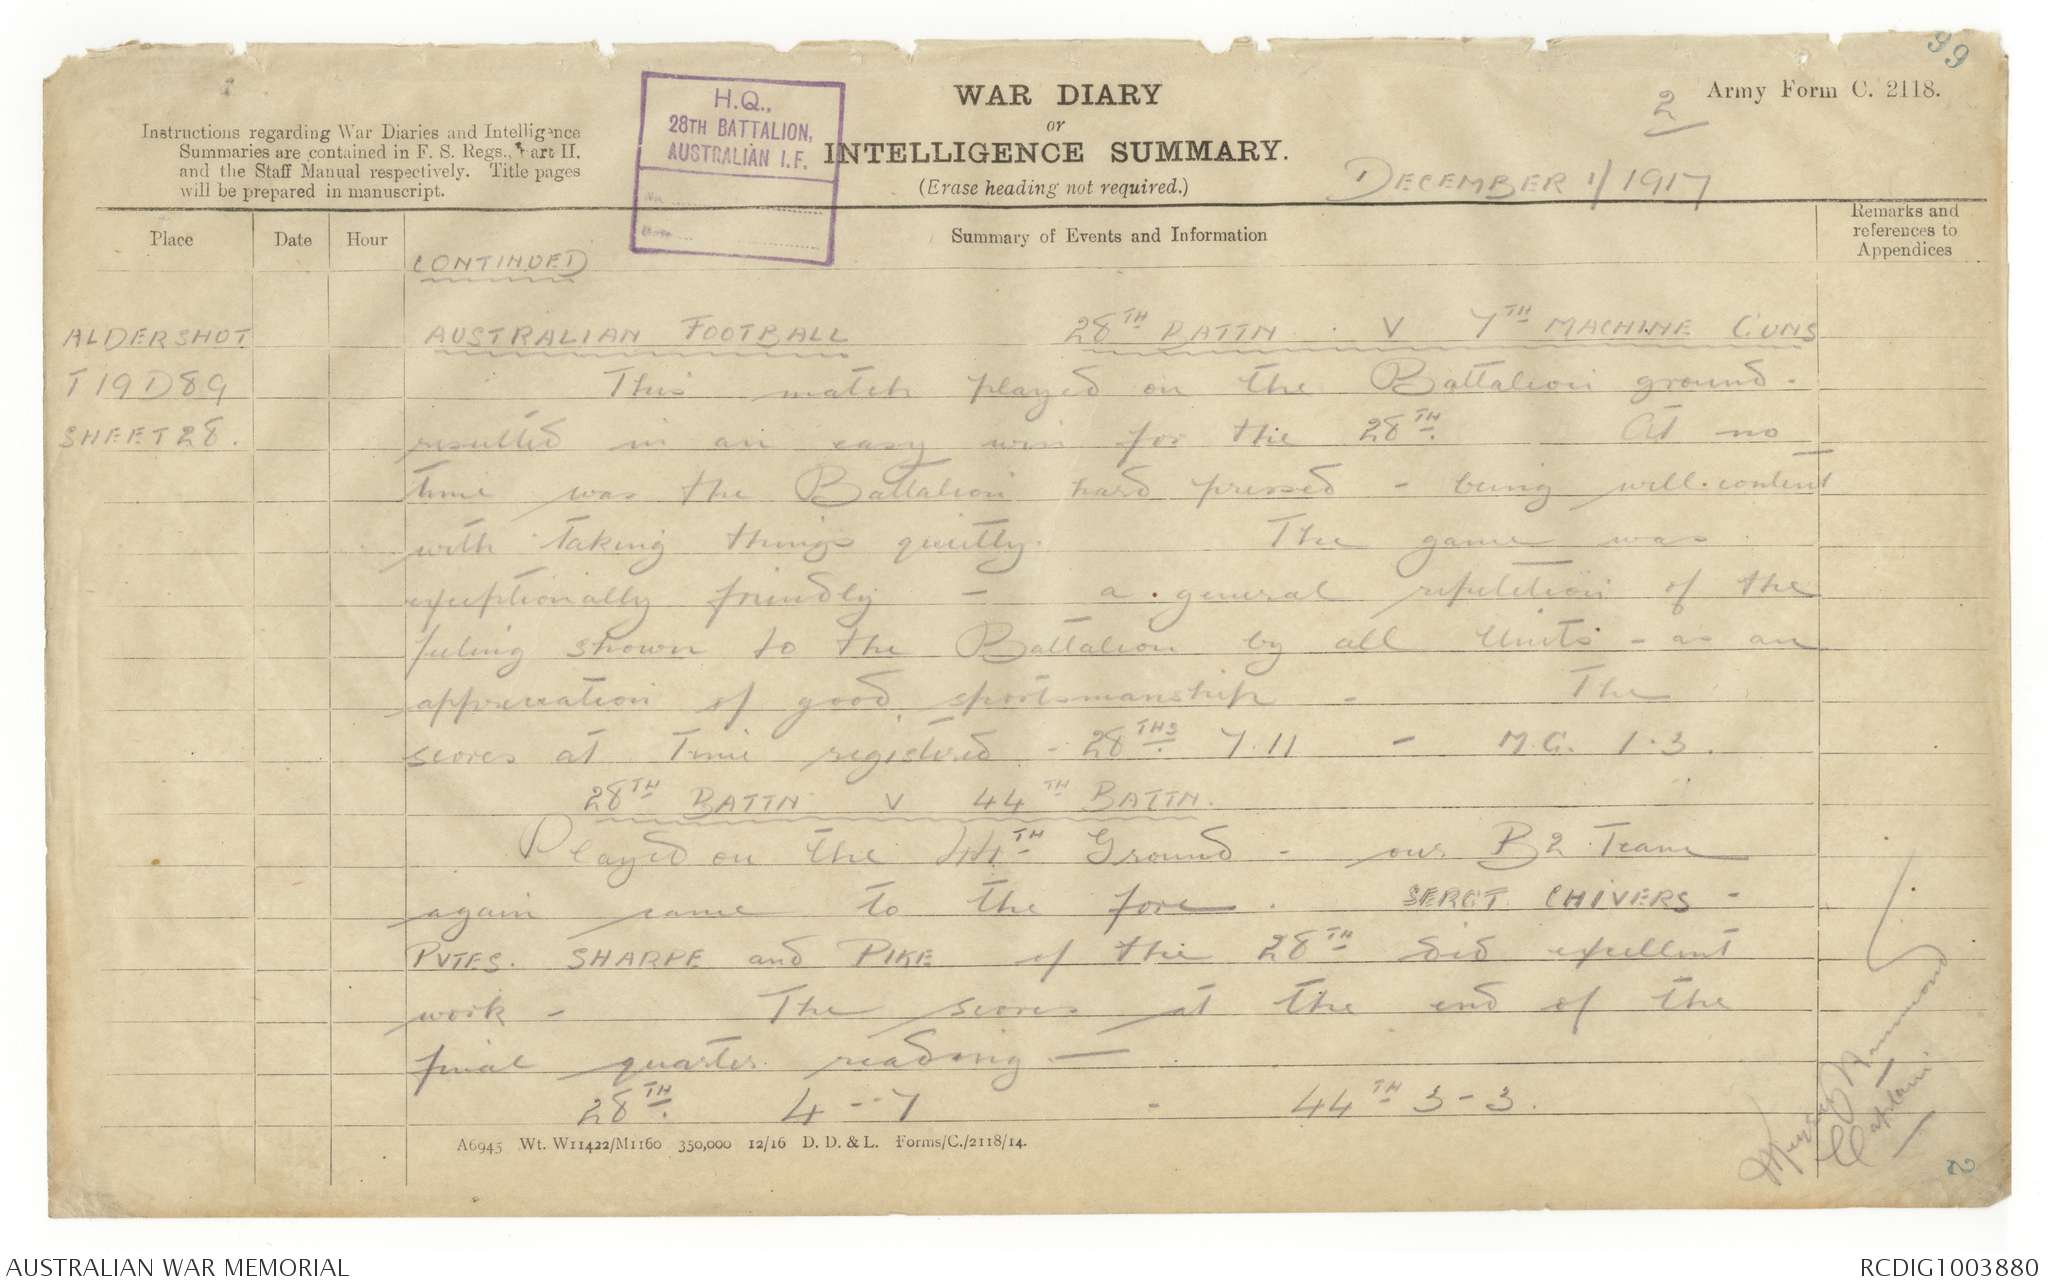 99
WAR DIARY
or
INTELLIGENCE SUMMARY.
(Erase heading not required.)
Army Form C. 2118.
2
DECEMBER 1/1917
Instructions regarding War Diaries and Intelligence
Summaries are contained in F. S. Regs., Part II.
and the Staff Manual respectively. Title pages
will be prepared in manuscript.
H.Q.,
28TH BATTALION,
AUSTRALIAN I.F.
No
Date
Place
Date
Hour
Summary of Events and Information
Remarks and
references to
Appendices
CONTINUED
ALDERSHOT
T19D89
SHEET 28.
AUSTRALIAN FOOTBALL 28TH BATTN. V 7TH MACHINE GUNS
This match played on the Battalion ground -
resulted in an easy win for the 28TH. At no
time was the Battalion hard pressed - being well content
with taking things quietly. The game was
exceptionally friendly - a general repetition of the
feeling shown to the Battalion by all Units - as an
appreciation of good sportsmanship - The
scores at Time registered - 28THS 7.11 - M.G. 1.3.
28TH BATTN V 44TH BATTN.
Played on the 44TH Ground - our B2 Team
again came to the fore. SERGT CHIVERS -
PVTES. SHARPE and PIKE of the 28TH did excellent
work - The scores at the end of the
final quarter reading —
28TH. 4 - 7 - 44TH 3 - 3.
Captain
2
A6945 Wt. W11422/M1160 350,000 12/16 D. D. & L. Forms/C./2118/14.
AUSTRALIAN WAR MEMORIAL
RCDIG1003880